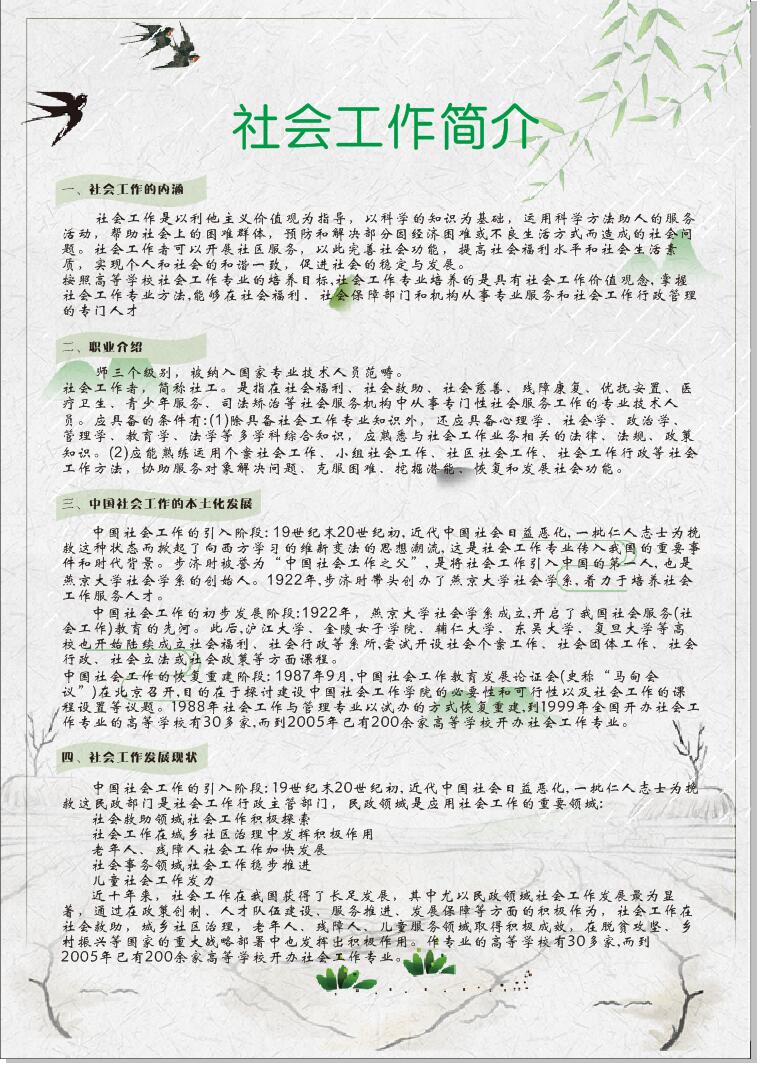 社会工作简介
一、社会工作的内涵
社会工作是以利他主义价值观为指导，以科学的知识为基础，运用科学方法助人的服务
活动，帮助社会上的困难群体，预防和解决部分因经济困难或不良生活方式而造成的社会问
题。社会工作者可以开展社区服务，以此完善社会功能，提高社会福利水平和社会生活素
质，实现个人和社会的和谐一致，促进社会的稳定与发展。
按照高等学校社会工作专业的培养目标,社会工作专业培养的是具有社会工作价值观念,掌握
社会工作专业方法,能够在社会福利、社会保障部门和机构从事专业服务和社会工作行政管理
的专门人才
二、职业介绍
师三个级别，被纳入国家专业技术人员范畴。
社会工作者，简称社工。是指在社会福利、社会救助、社会慈善、残障康复、优抚安置、医
疗卫生、青少年服务、司法矫治等社会服务机构中从事专门性社会服务工作的专业技术人
员。应具备的条件有:(1)除具备社会工作专业知识外，还应具备心理学、社会学、政治学、
管理学、教育学、法学等多学科综合知识，应熟悉与社会工作业务相关的法律、法规、政策
知识。(2)应能熟练运用个案社会工作、小组社会工作、社区社会工作、社会工作行政等社会
工作方法，协助服务对象解决问题、克服困难、挖掘潜能、恢复和发展社会功能。
三、中国社会工作的本土化发展
中国社会工作的引入阶段:19世纪末20世纪初,近代中国社会日益恶化,一批仁人志士为挽
救这种状态而掀起了向西方学习的维新变法的思想潮流,这是社会工作专业传入我国的重要事
件和时代背景。步济时被誉为“中国社会工作之父”,是将社会工作引入中国的第一人,也是
燕京大学社会学系的创始人。1922年,步济时带头创办了燕京大学社会学系,着力于培养社会
工作服务人才。
中国社会工作的初步发展阶段:1922年，燕京大学社会学系成立,开启了我国社会服务(社
会工作)教育的先河。此后,沪江大学、金陵女子学院、辅仁大学、东吴大学、复旦大学等高
校也开始陆续成立社会福利、社会行政等系所,尝试开设社会个案工作、社会团体工作、社会
行政、社会立法或社会政策等方面课程。
中国社会工作的恢复重建阶段:1987年9月,中国社会工作教育发展论证会(史称“马甸会
议”)在北京召开,目的在于探讨建设中国社会工作学院的必要性和可行性以及社会工作的课
程设置等议题。1988年社会工作与管理专业以试办的方式恢复重建,到1999年全国开办社会工
作专业的高等学校有30多家,而到2005年已有200余家高等学校开办社会工作专业。
四、社会工作发展现状
中国社会工作的引入阶段:19世纪末20世纪初,近代中国社会日益恶化,一批仁人志士为挽
救这民政部门是社会工作行政主管部门，民政领域是应用社会工作的重要领域:
社会救助领域社会工作积极探索
社会工作在城乡社区治理中发挥积极作用
老年人、残障人社会工作加快发展
社会事务领域社会工作稳步推进
儿童社会工作发力
近十年来，社会工作在我国获得了长足发展，其中尤以民政领域社会工作发展最为显
著，通过在政策创制、人才队伍建设、服务推进、发展保障等方面的积极作为，社会工作在
社会救助，城乡社区治理，老年人、残障人、儿童服务领域取得积极成效，在脱贫攻坚、乡
村振兴等国家的重大战略部署中也发挥出积极作用。作专业的高等学校有30多家,而到
2005年已有200余家高等学校开办社会工作专业。